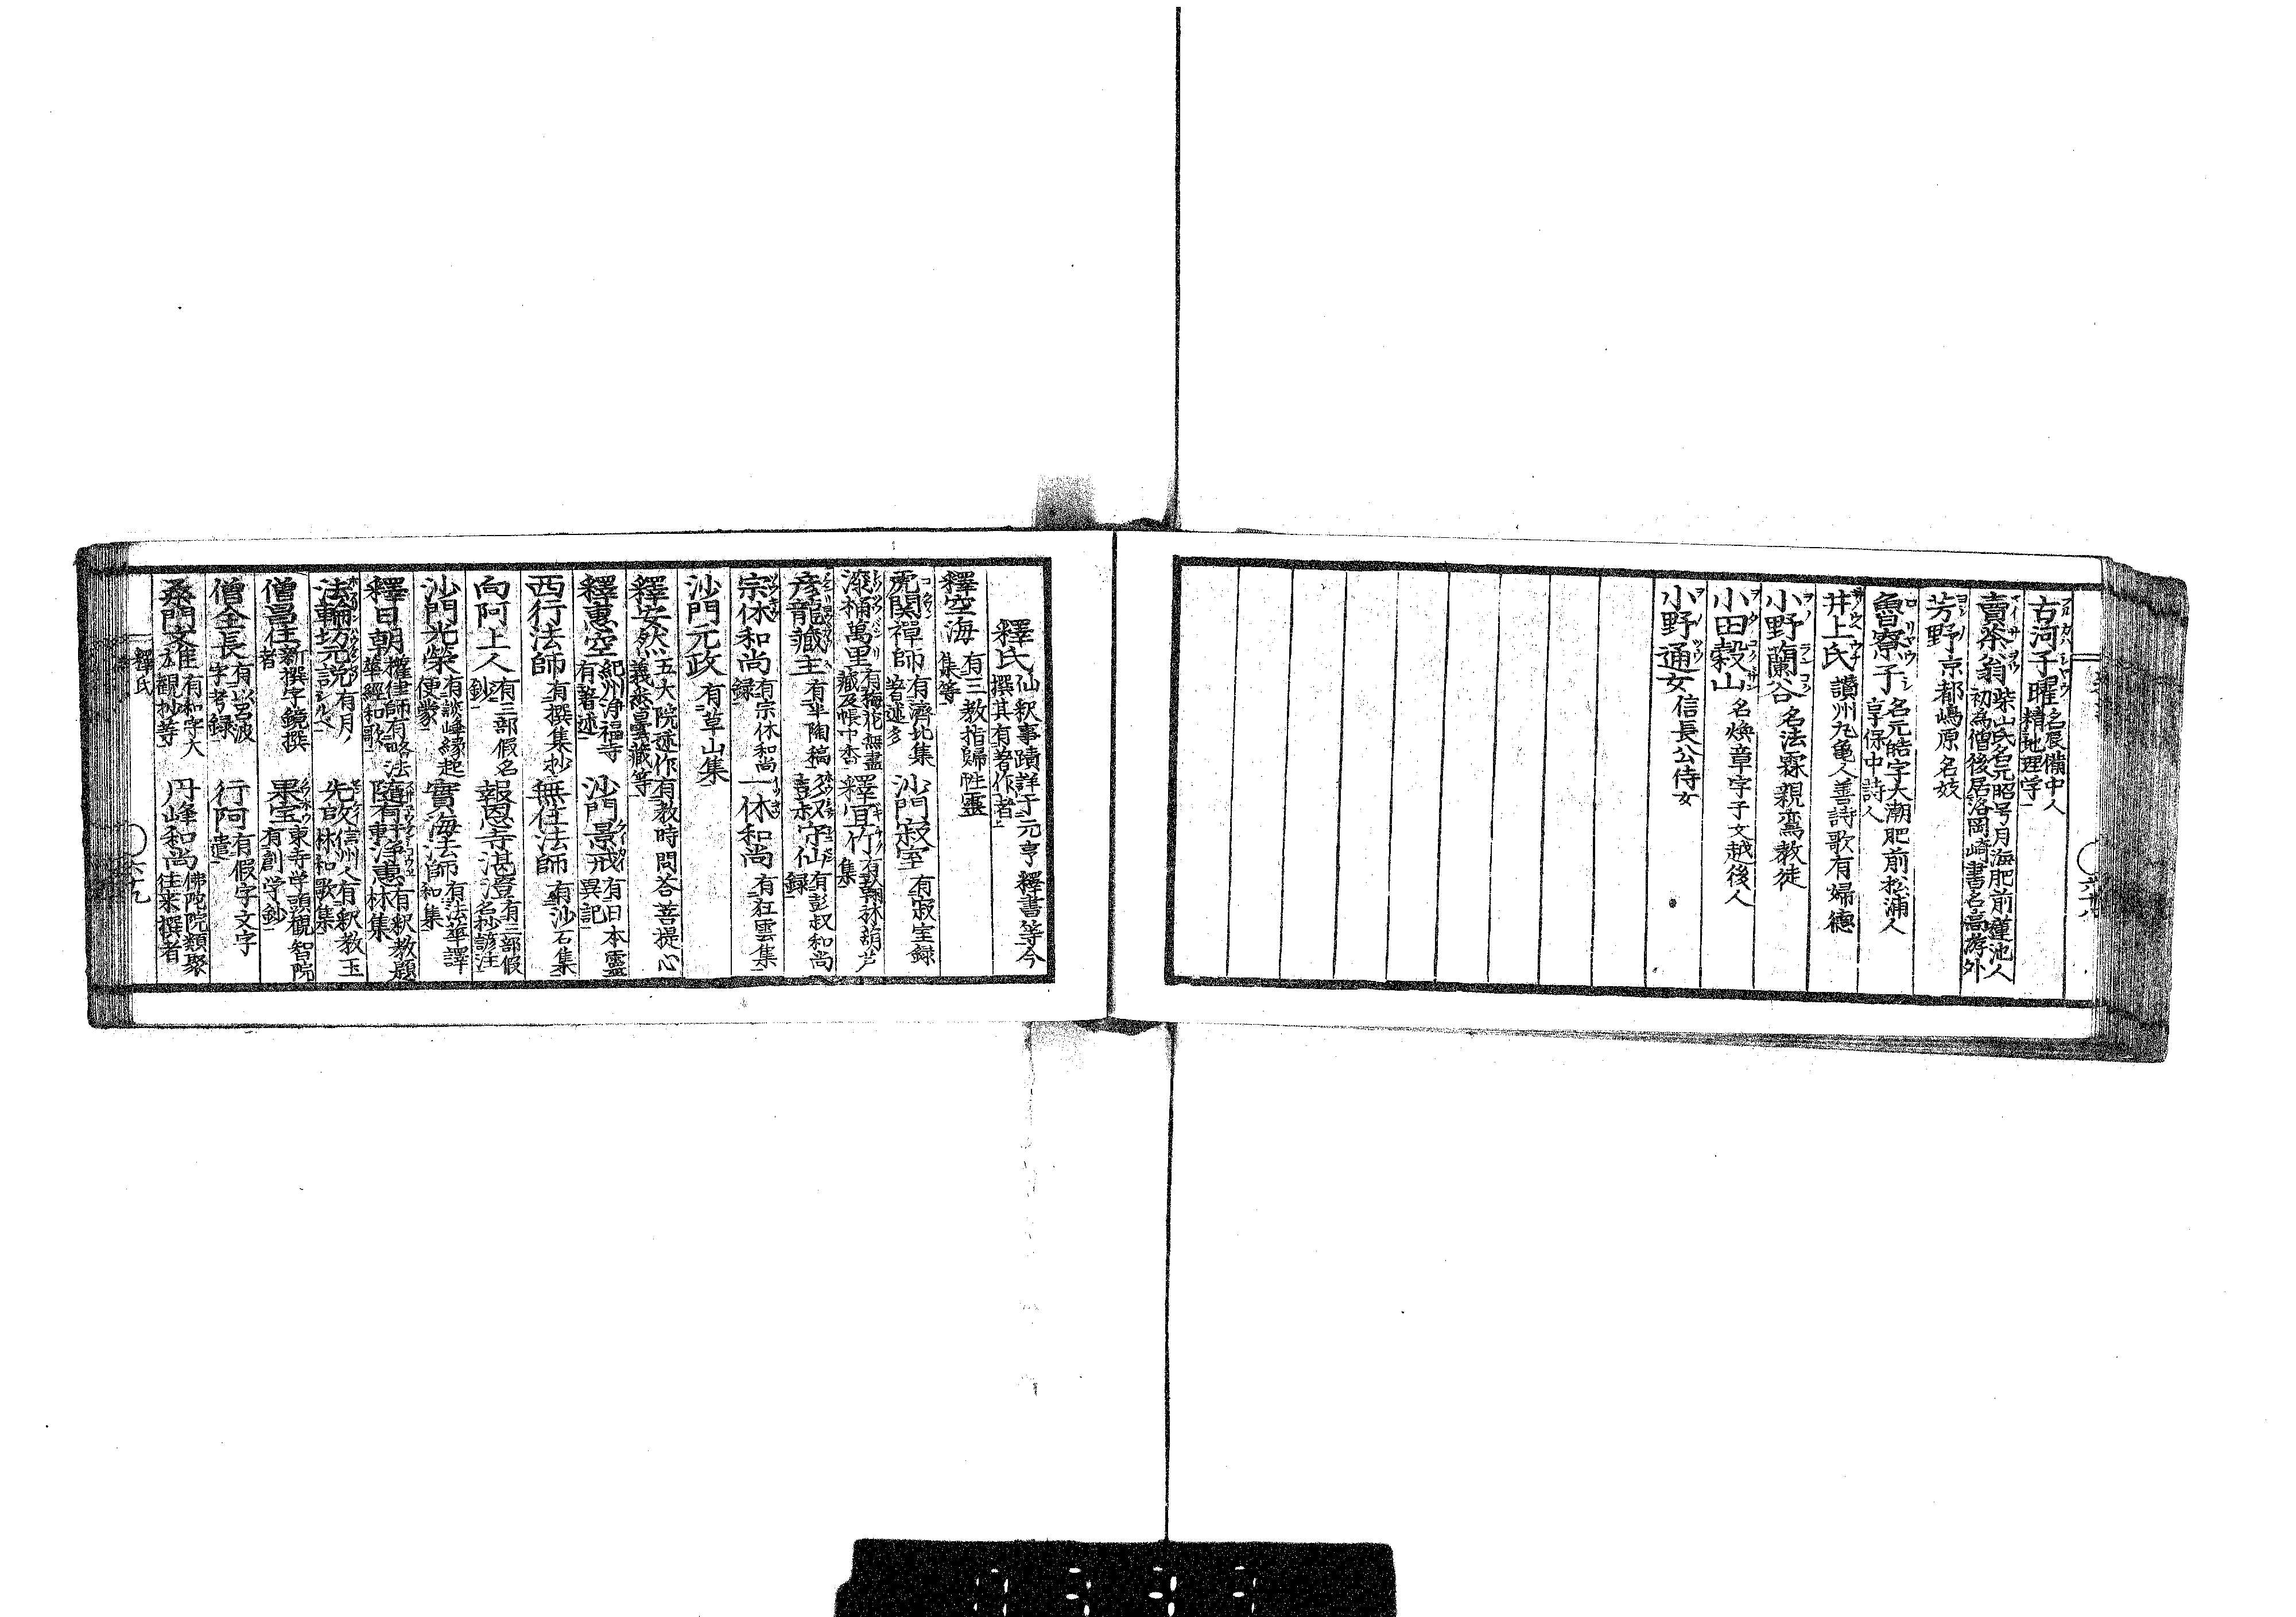 古河子曜 名辰備中人精地理学
賣茶翁 柴山氏名元昭号月海肥前蓮池人初為僧後居洛岡崎書名高游外
芳野 京都嶋原名妓
魯寮子 名元皓字大潮肥前松浦人享保中詩人
井上氏 讃州丸亀人善詩歌有婦徳
小野蘭谷 名法霖親鸞教徒
小田穀山 名煥章字子文越後人
小野通女 信長公侍女
釋氏 仙釈事蹟詳于元亨釋書等今撰其有著作者
釋空海 有三教指歸性霊集等
虎関禅師 有濟北集著述多 沙門寂室 有寂室録
漆桶萬里 有梅花無盡藏及帳中香 釋宜竹 有翰林葫芦集
彦龍藏主 有半陶稿 守仙 有彭叔和尚録
宗休和尚 有宗休和尚録 一休和尚 有狂雲集
沙門元政 有草山集
釋安然 五大院述作有教時問答菩提心義悉曇藏等
釋惠空 紀州浄福寺有著述 沙門景戒 有日本靈異記
西行法師 有撰集抄 無住法師 有沙石集
向阿上人 有三部假名鈔 報恩寺湛澄 有三部假名抄諺注
沙門光榮 有談峰縁起便蒙 實海法師 有法華譯和集
釋日朝 權律師有略法華經和歌 隨有軒浄惠 有釈教題林集
法輪坊元説 有月ノシルベ 先啟 信州人有釈教玉林和歌集
僧昌住 新撰字鏡撰者 果宝 東寺学頭観智院有創学鈔
僧全長 有以呂波字考録 行阿 有假字文字遣
桑門文雄 有和字大観抄等 丹峰和尚 佛陀院類聚往来撰者
釋氏
六十九